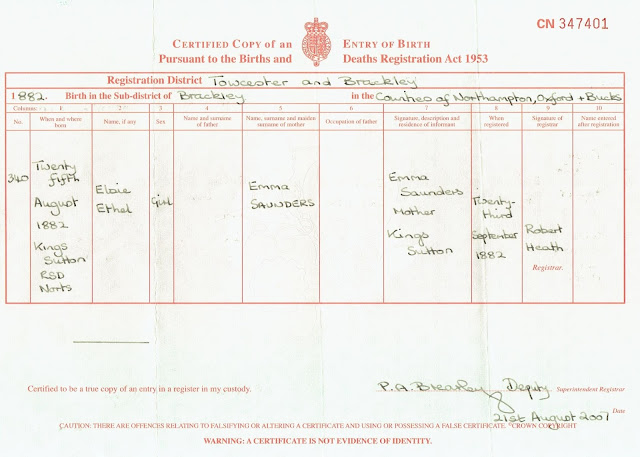 CN 347401
CERTIFIED COPY OF AN ENTRY OF BIRTH
PURSUANT TO THE BIRTHS AND DEATHS REGISTRATION ACT 1953
Registration District Towcester and Brackley
1882. Birth in the Sub-district of Brackley in the Counties of Northampton, Oxford + Bucks
Columns:- 1 2 3 4 5 6 7 8 9 10
No. When and where born Name, if any Sex Name and surname of father Name, surname and maiden surname of mother Occupation of father Signature, description and residence of informant When registered Signature of registrar Name entered after registration
340
Twenty
fifth
August
1882
Kings
Sutton
RSD
Norts
Elsie
Ethel
Girl
Emma
SAUNDERS
Emma
Saunders
Mother
Kings
Sutton
Twenty-
third
September
1882
Robert
Heath
Registrar.
Certified to be a true copy of an entry in a register in my custody.
P.A. Brearley Deputy Superintendent Registrar
21st August 2007 Date
CAUTION: THERE ARE OFFENCES RELATING TO FALSIFYING OR ALTERING A CERTIFICATE AND USING OR POSSESSING A FALSE CERTIFICATE. ©CROWN COPYRIGHT
WARNING: A CERTIFICATE IS NOT EVIDENCE OF IDENTITY.